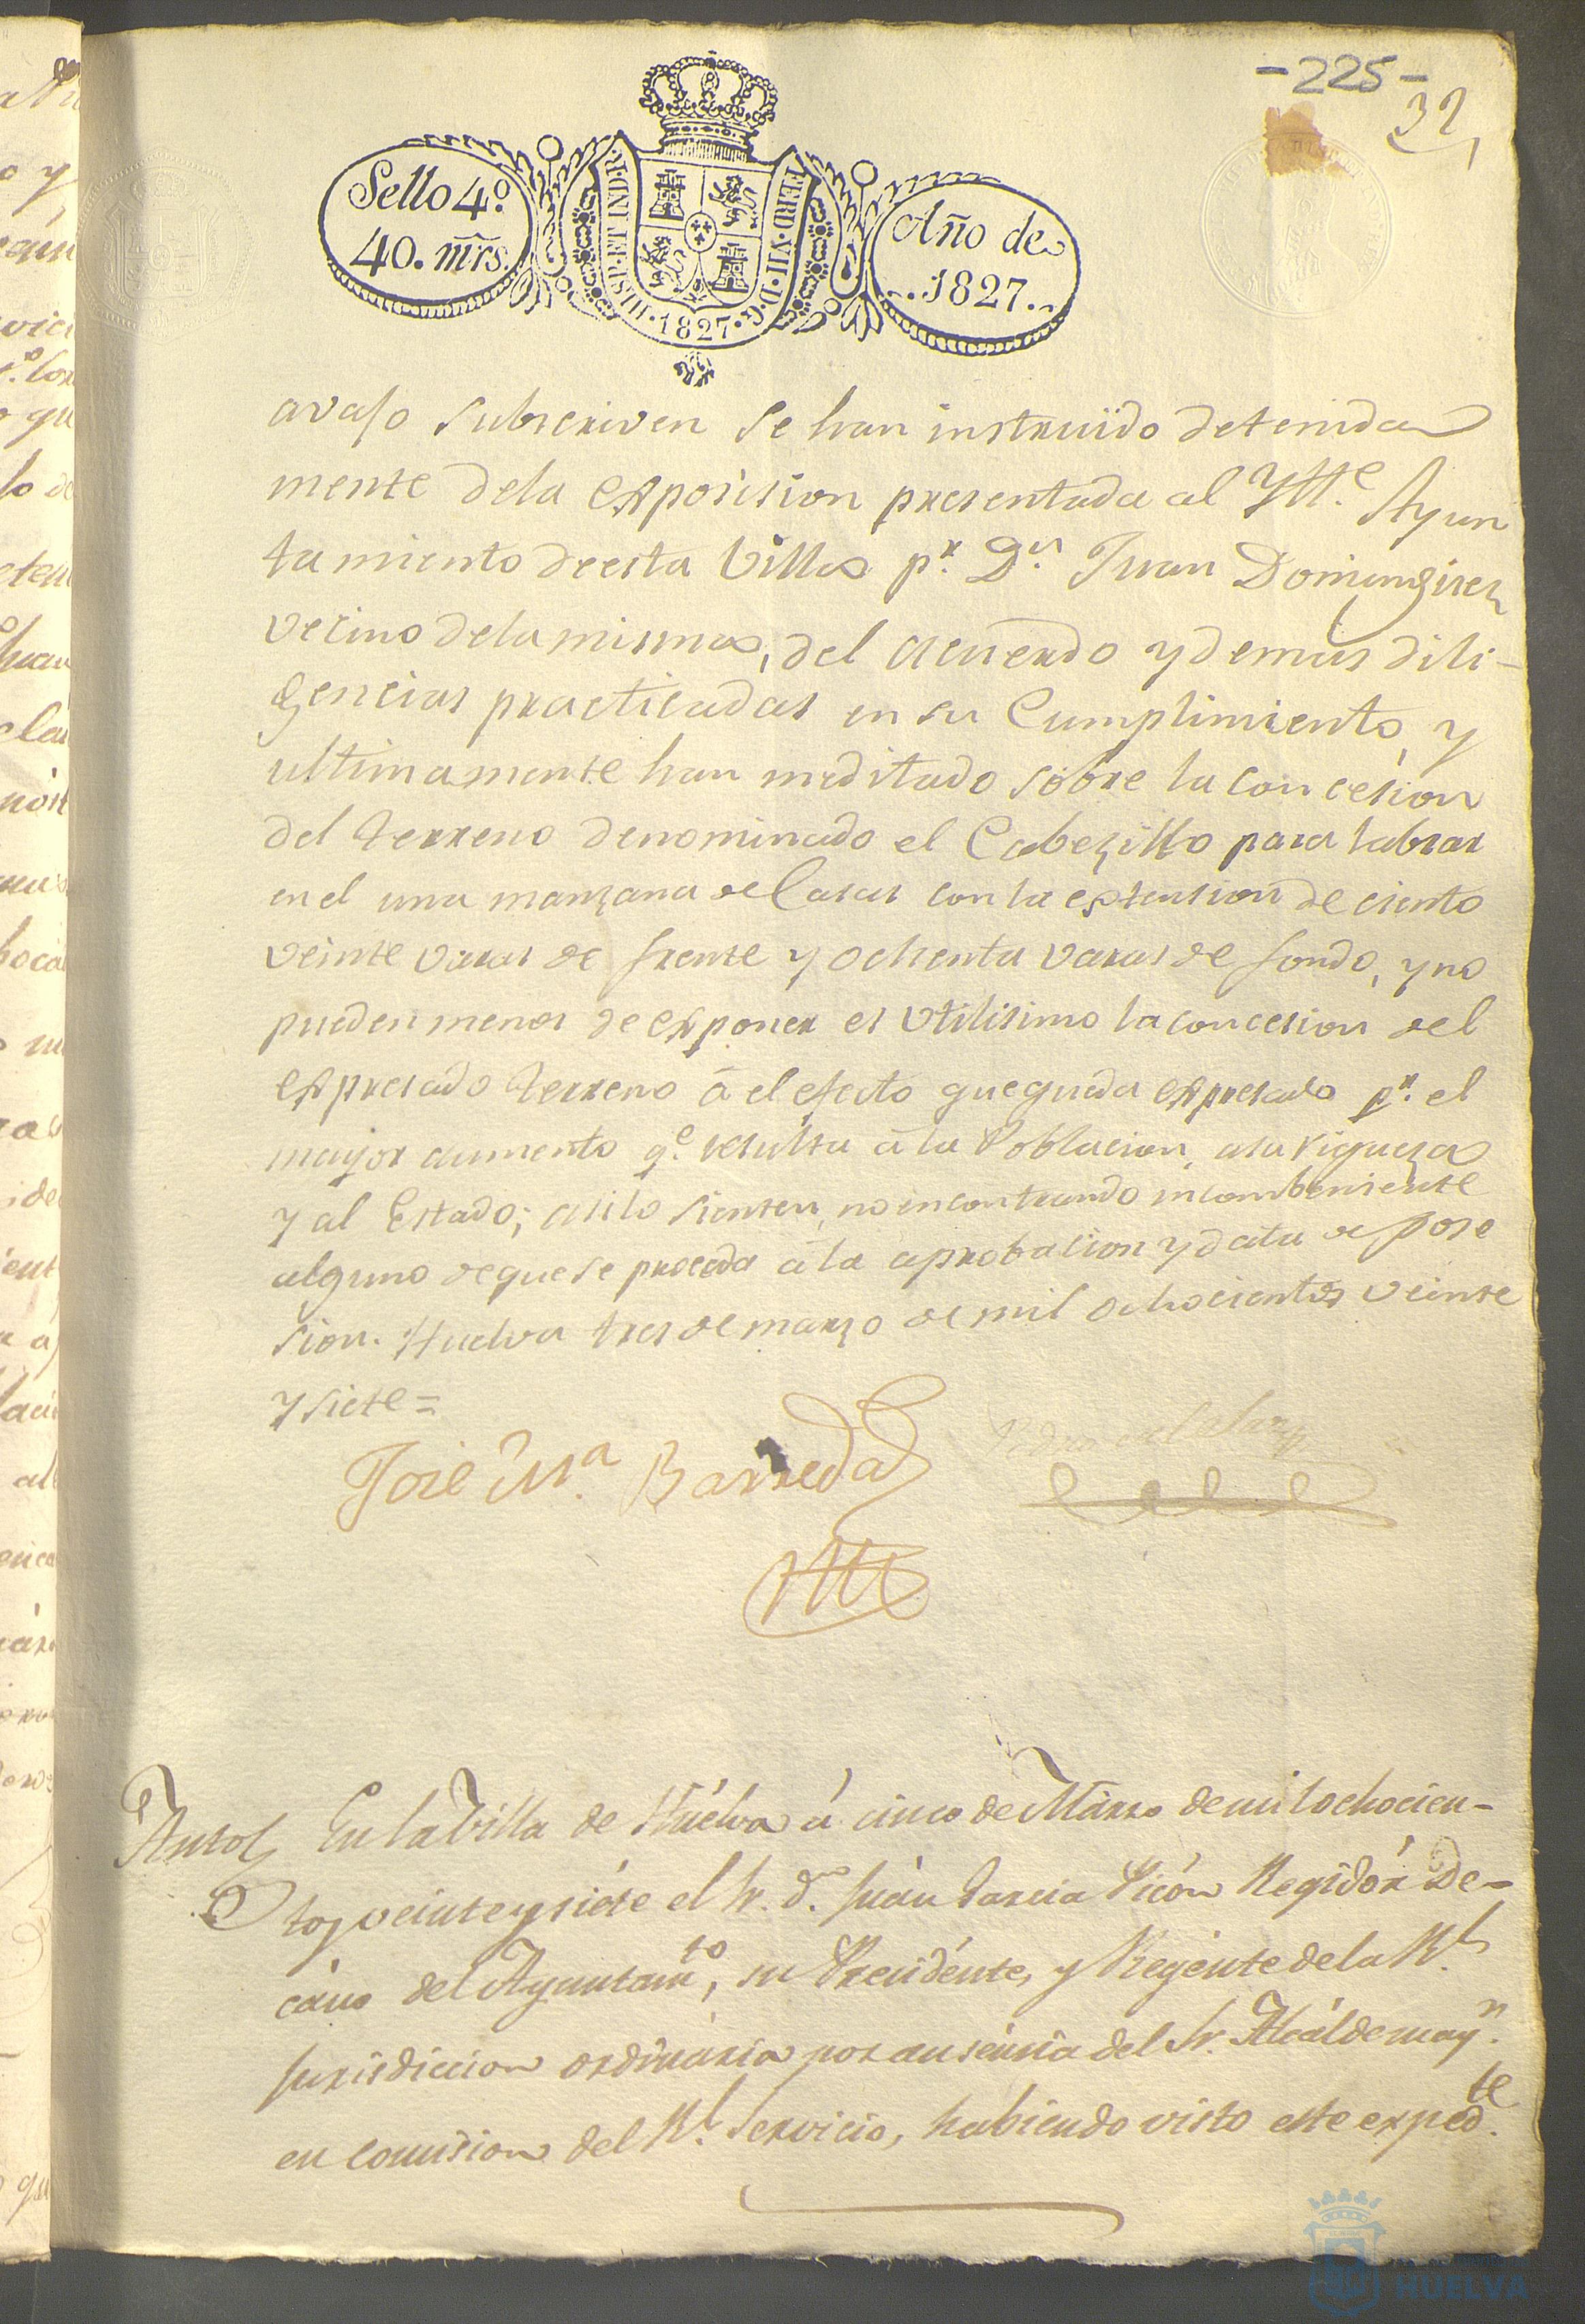 -225-
32
Sello 4º.
40. mrs.
HISP. ET IND. R.
FERD. VII. D. G.
.1827.
Año de
..1827..
avajo subscriven se han instruido detenida
mente dela exposision presentada al Ylle. Ayun
tamiento de esta Villa pr. Dn. Juan Dominguez
vecino dela misma, del acuerdo y demas dili-
gencias practicadas en su Cumplimiento y
ultimamente han meditado sobre la concesion
del terreno denominado el Cabezillo para labrar
en el una manzana de Casas con la extension de ciento
veinte varas de frente y ochenta varas de fondo, y no
pueden menos de exponer es utilisimo la concesion del
expresado terreno á el efecto que queda expresado pr. el
mayor aumento qe. resulta á la Poblacion, a su riqueza
y al Estado; asi lo sienten, no encontrando incombeniente
alguno de que se proceda á la aprobacion y data de pose
sion. Huelva tres de marzo de mil ochocientos veinte
y siete=
José Ma. Barreda
Auto En la Villa de Huélva á cinco de Márzo de mil ochocien-
tos veinte y siéte el Sr. dn. Juán Garcia Picón Regidór De-
cáno del Ayuntamto, su Presidénte, y Regénte de la Rl.
Jurisdiccion ordinária por auséncia del Sr. Alcálde mayr.
en comision del Rl. Servicio, habiendo visto este expedte.
HUELVA